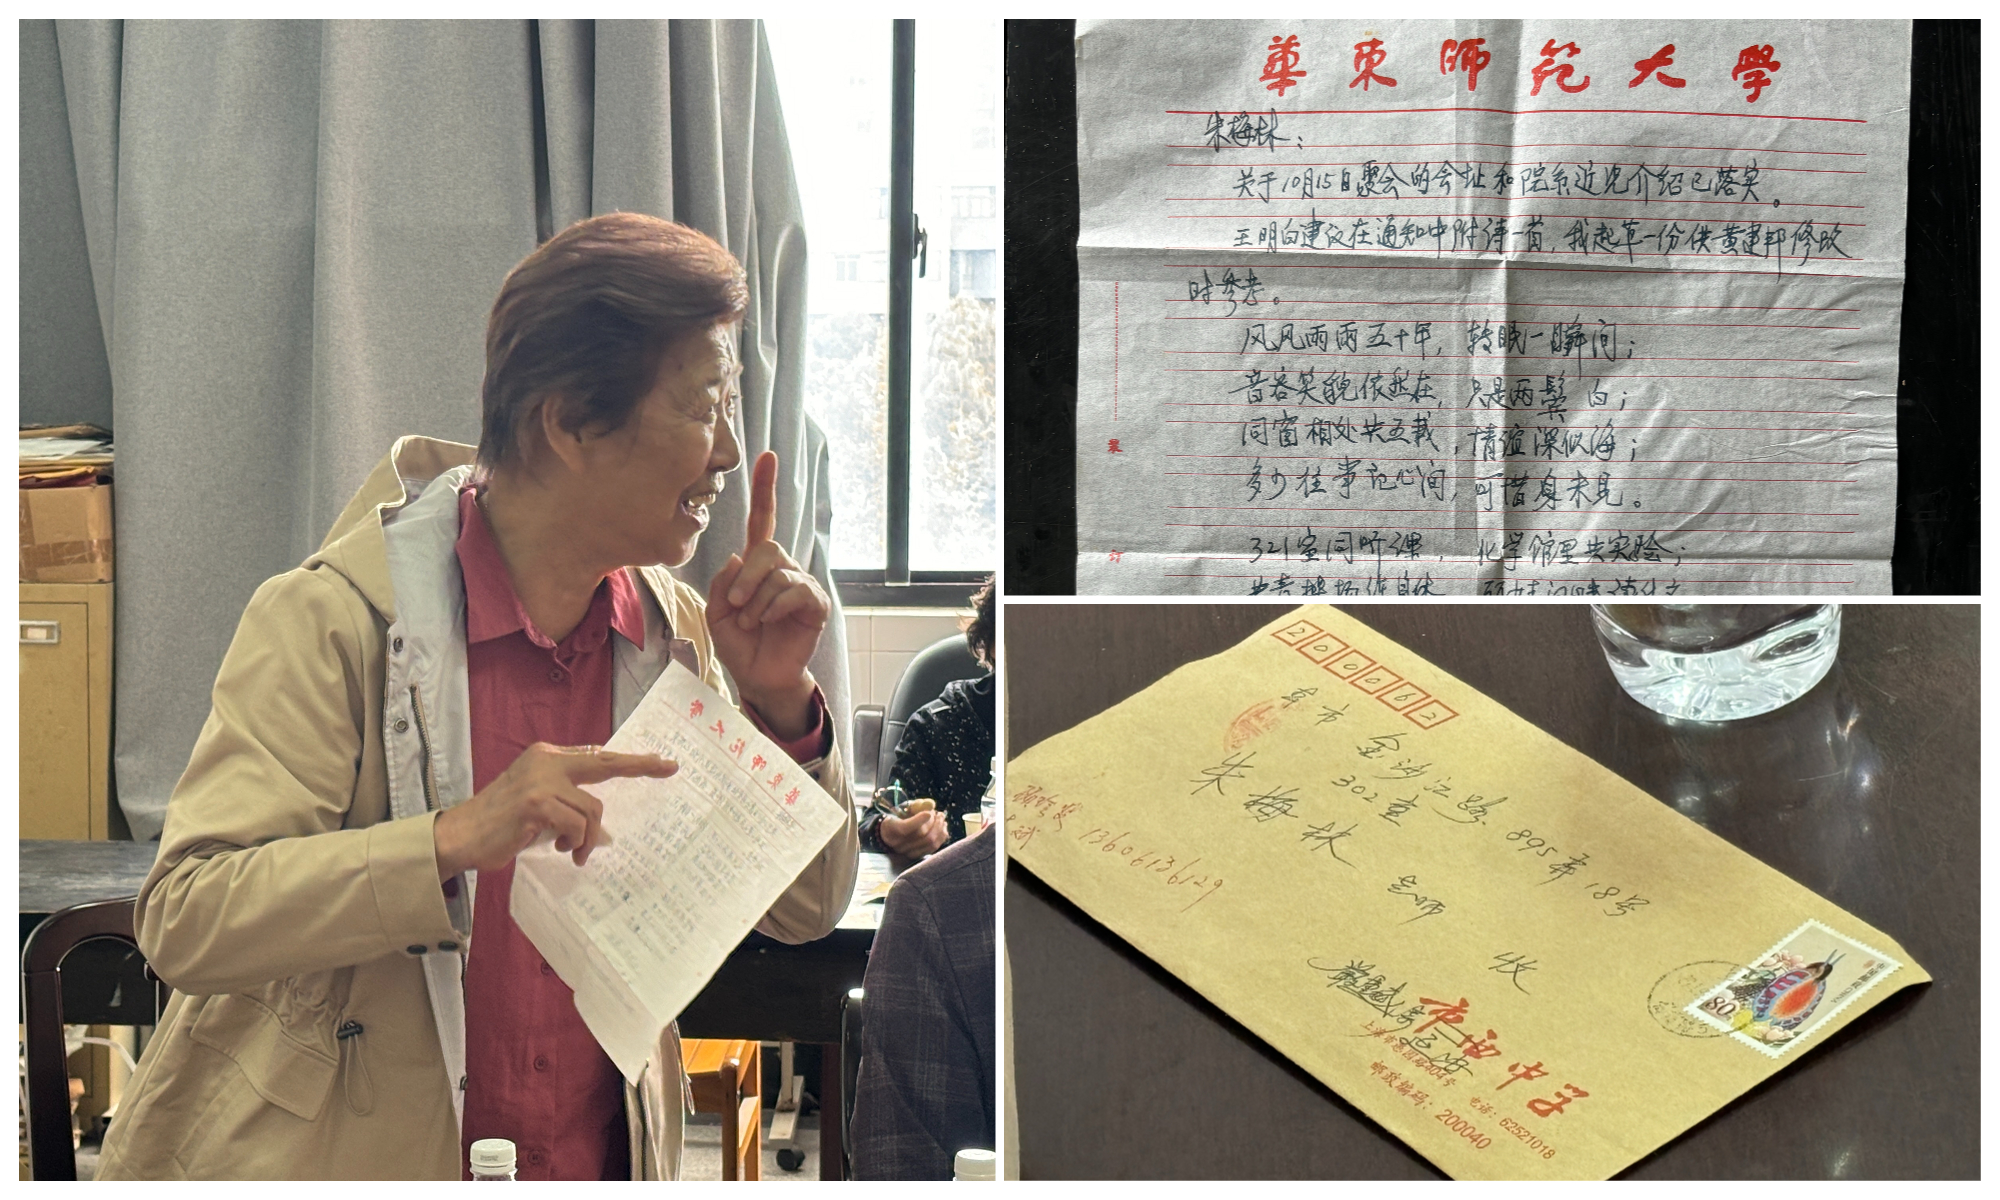 華東師范大學
朱梅林：
关于10月15日聚会的会址和院系近况介绍已落实。
王明白建议在通知中附诗一首，我起草一份供黄建邦修改
时参考。
风风雨雨五十年，转眼一瞬间；
音容笑貌依然在，只是两鬓白；
同窗相处共五载，情谊深似海；
多少往事记心间，可惜身未见。
321室同听课，化学馆里共实验；
華東師范大學
200062
本市
金沙江路895弄18号
302室
朱梅林
老师
收
13606136129
80
市西中学
上海市愚园路404号
电话：62521018
邮政编码：200040